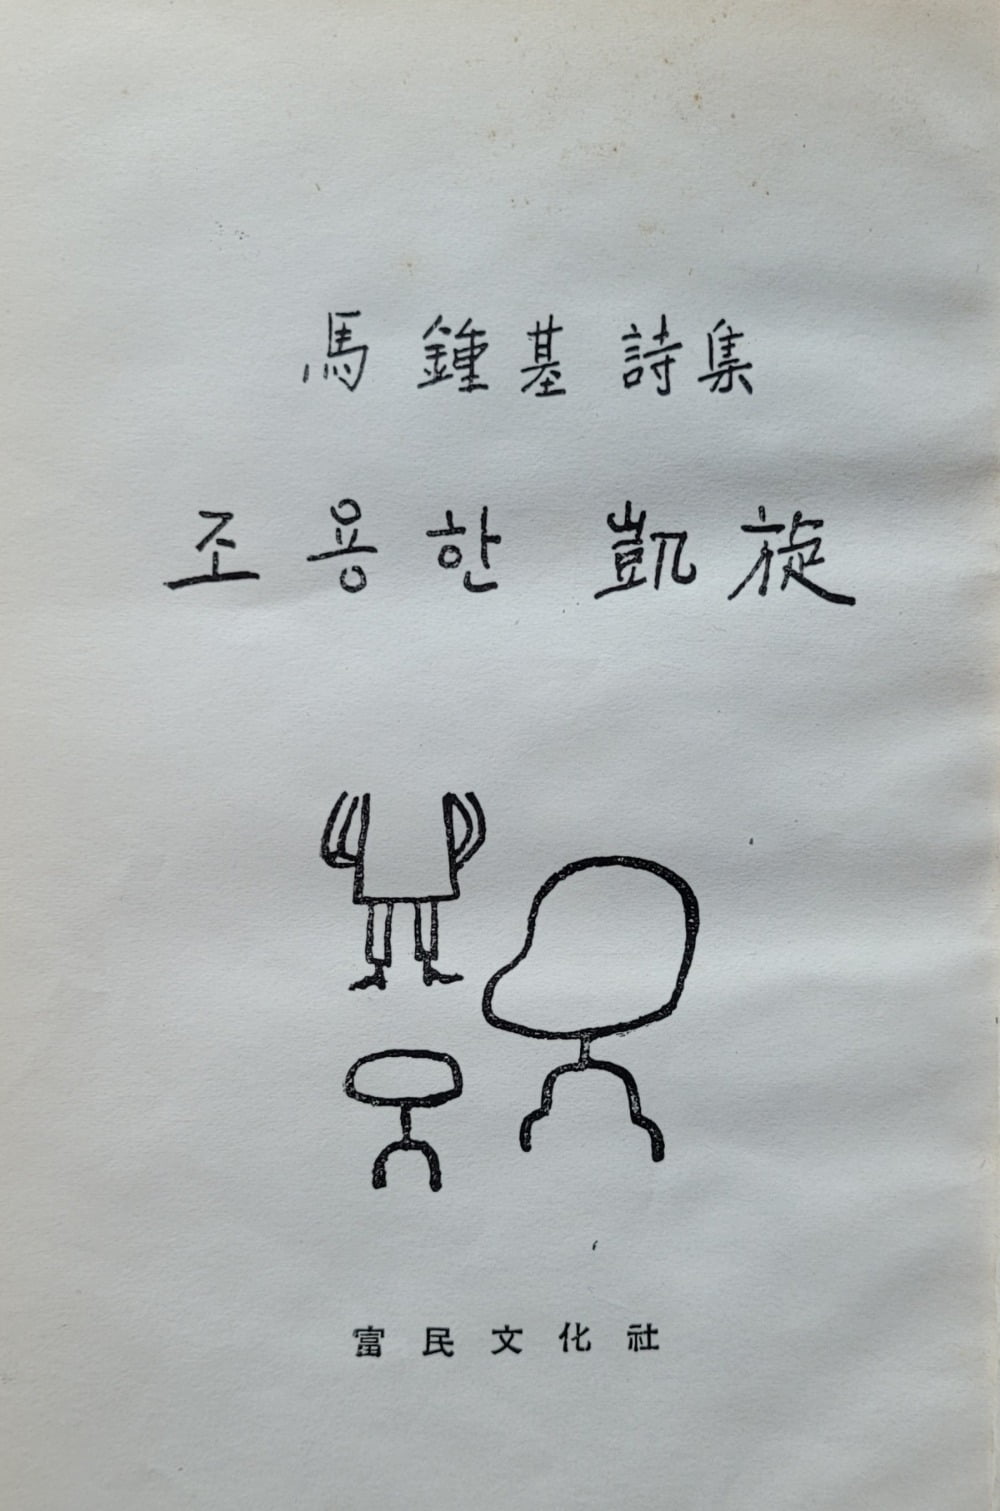 馬 鍾 基 詩集
조용한 凱旋
富民文化社